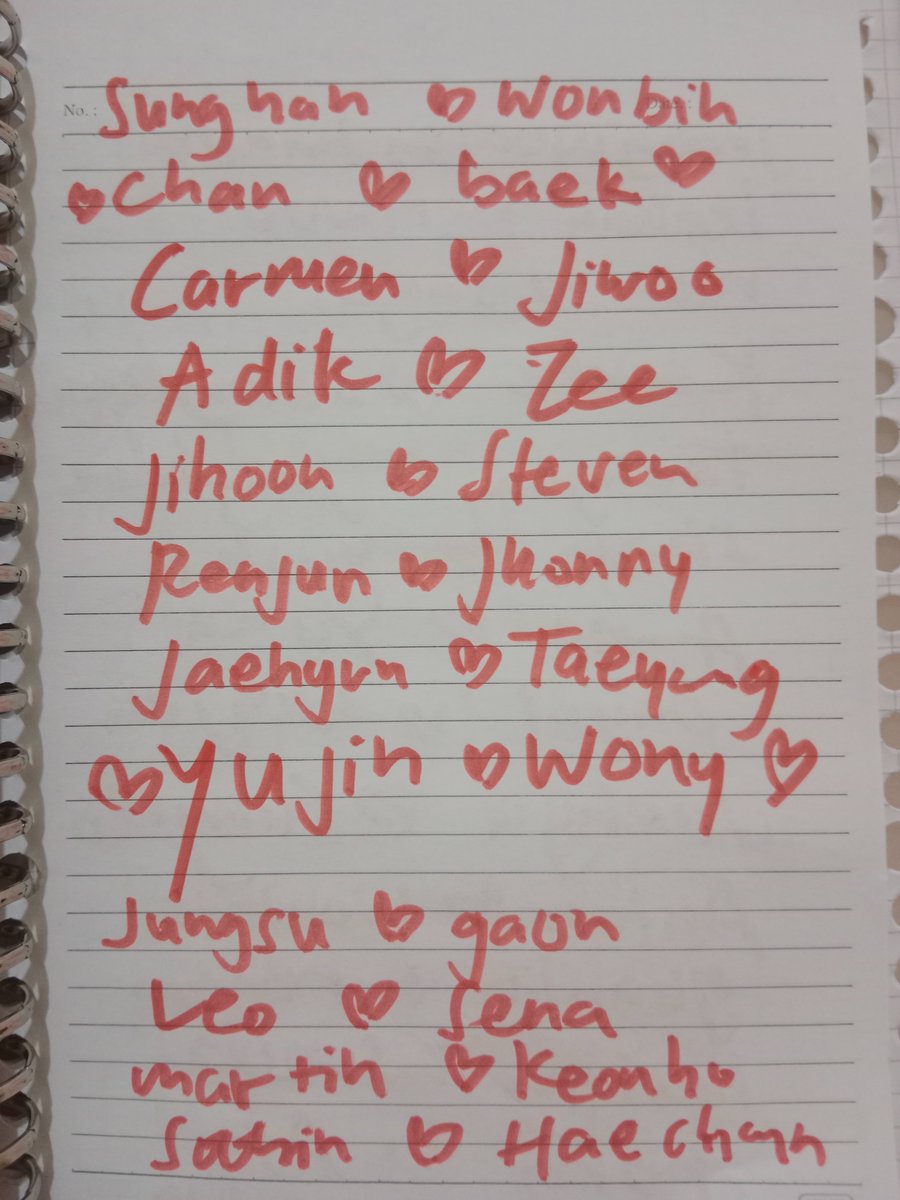 No.: Sunghan ♡ Wonbin Date.:
♡ Chan ♡ baek ♡
Carmen ♡ Jiwoo
Adik ♡ Zee
Jihoon ♡ Steven
Renjun ♡ Jhonny
Jaehyun ♡ Taeyung
♡ Yujin ♡ Wony ♡
Jungsu ♡ gaon
Leo ♡ Sena
martin ♡ Keonho
♡ Haechan